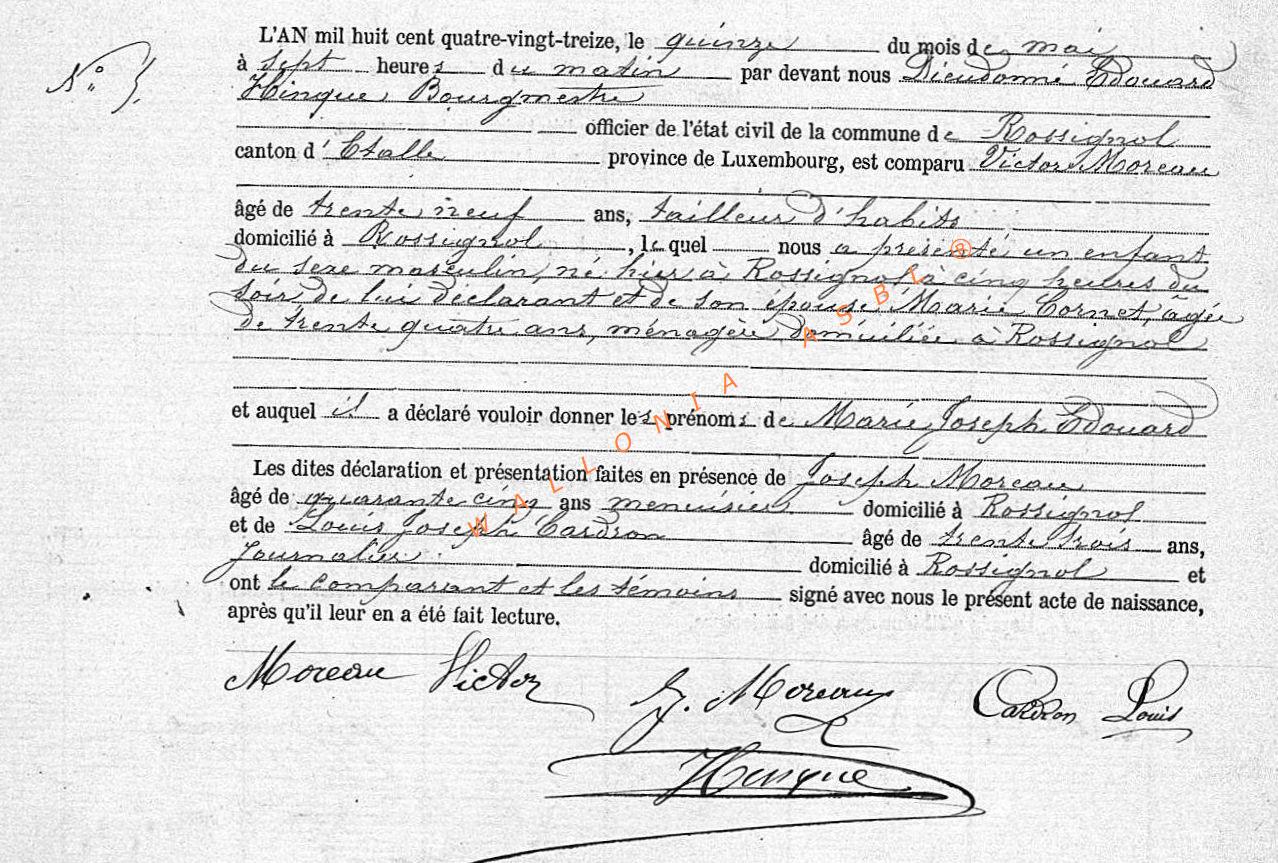 L'AN mil huit cent quatre-vingt-treize, le quinze du mois de mai
N°
à sept heures du matin par devant nous Dieudonné Edouard
Hinque Bourgmestre
officier de l'état civil de la commune de Rossignol
canton d' Etalle province de Luxembourg, est comparu Victor Moreau
âgé de trente neuf ans, tailleur d'habits
domicilié à Rossignol, le quel nous a présenté un enfant
du sexe masculin, né hier à Rossignol, à cinq heures du
soir de lui déclarant et de son épouse Marie Cornet, âgée
de trente quatre ans, ménagère domiciliée à Rossignol
et auquel il a déclaré vouloir donner les prénoms de Marie Joseph Edouard
Les dites déclaration et présentation faites en présence de Joseph Moreau
âgé de quarante cinq ans menuisier domicilié à Rossignol
et de Louis Joseph Cardron âgé de trente trois ans,
Journalier domicilié à Rossignol et
ont le comparant et les témoins signé avec nous le présent acte de naissance,
après qu'il leur en a été fait lecture.
Moreau Victor J. Moreau Cardron Louis
Hinque
WALLONIA ASBL ®